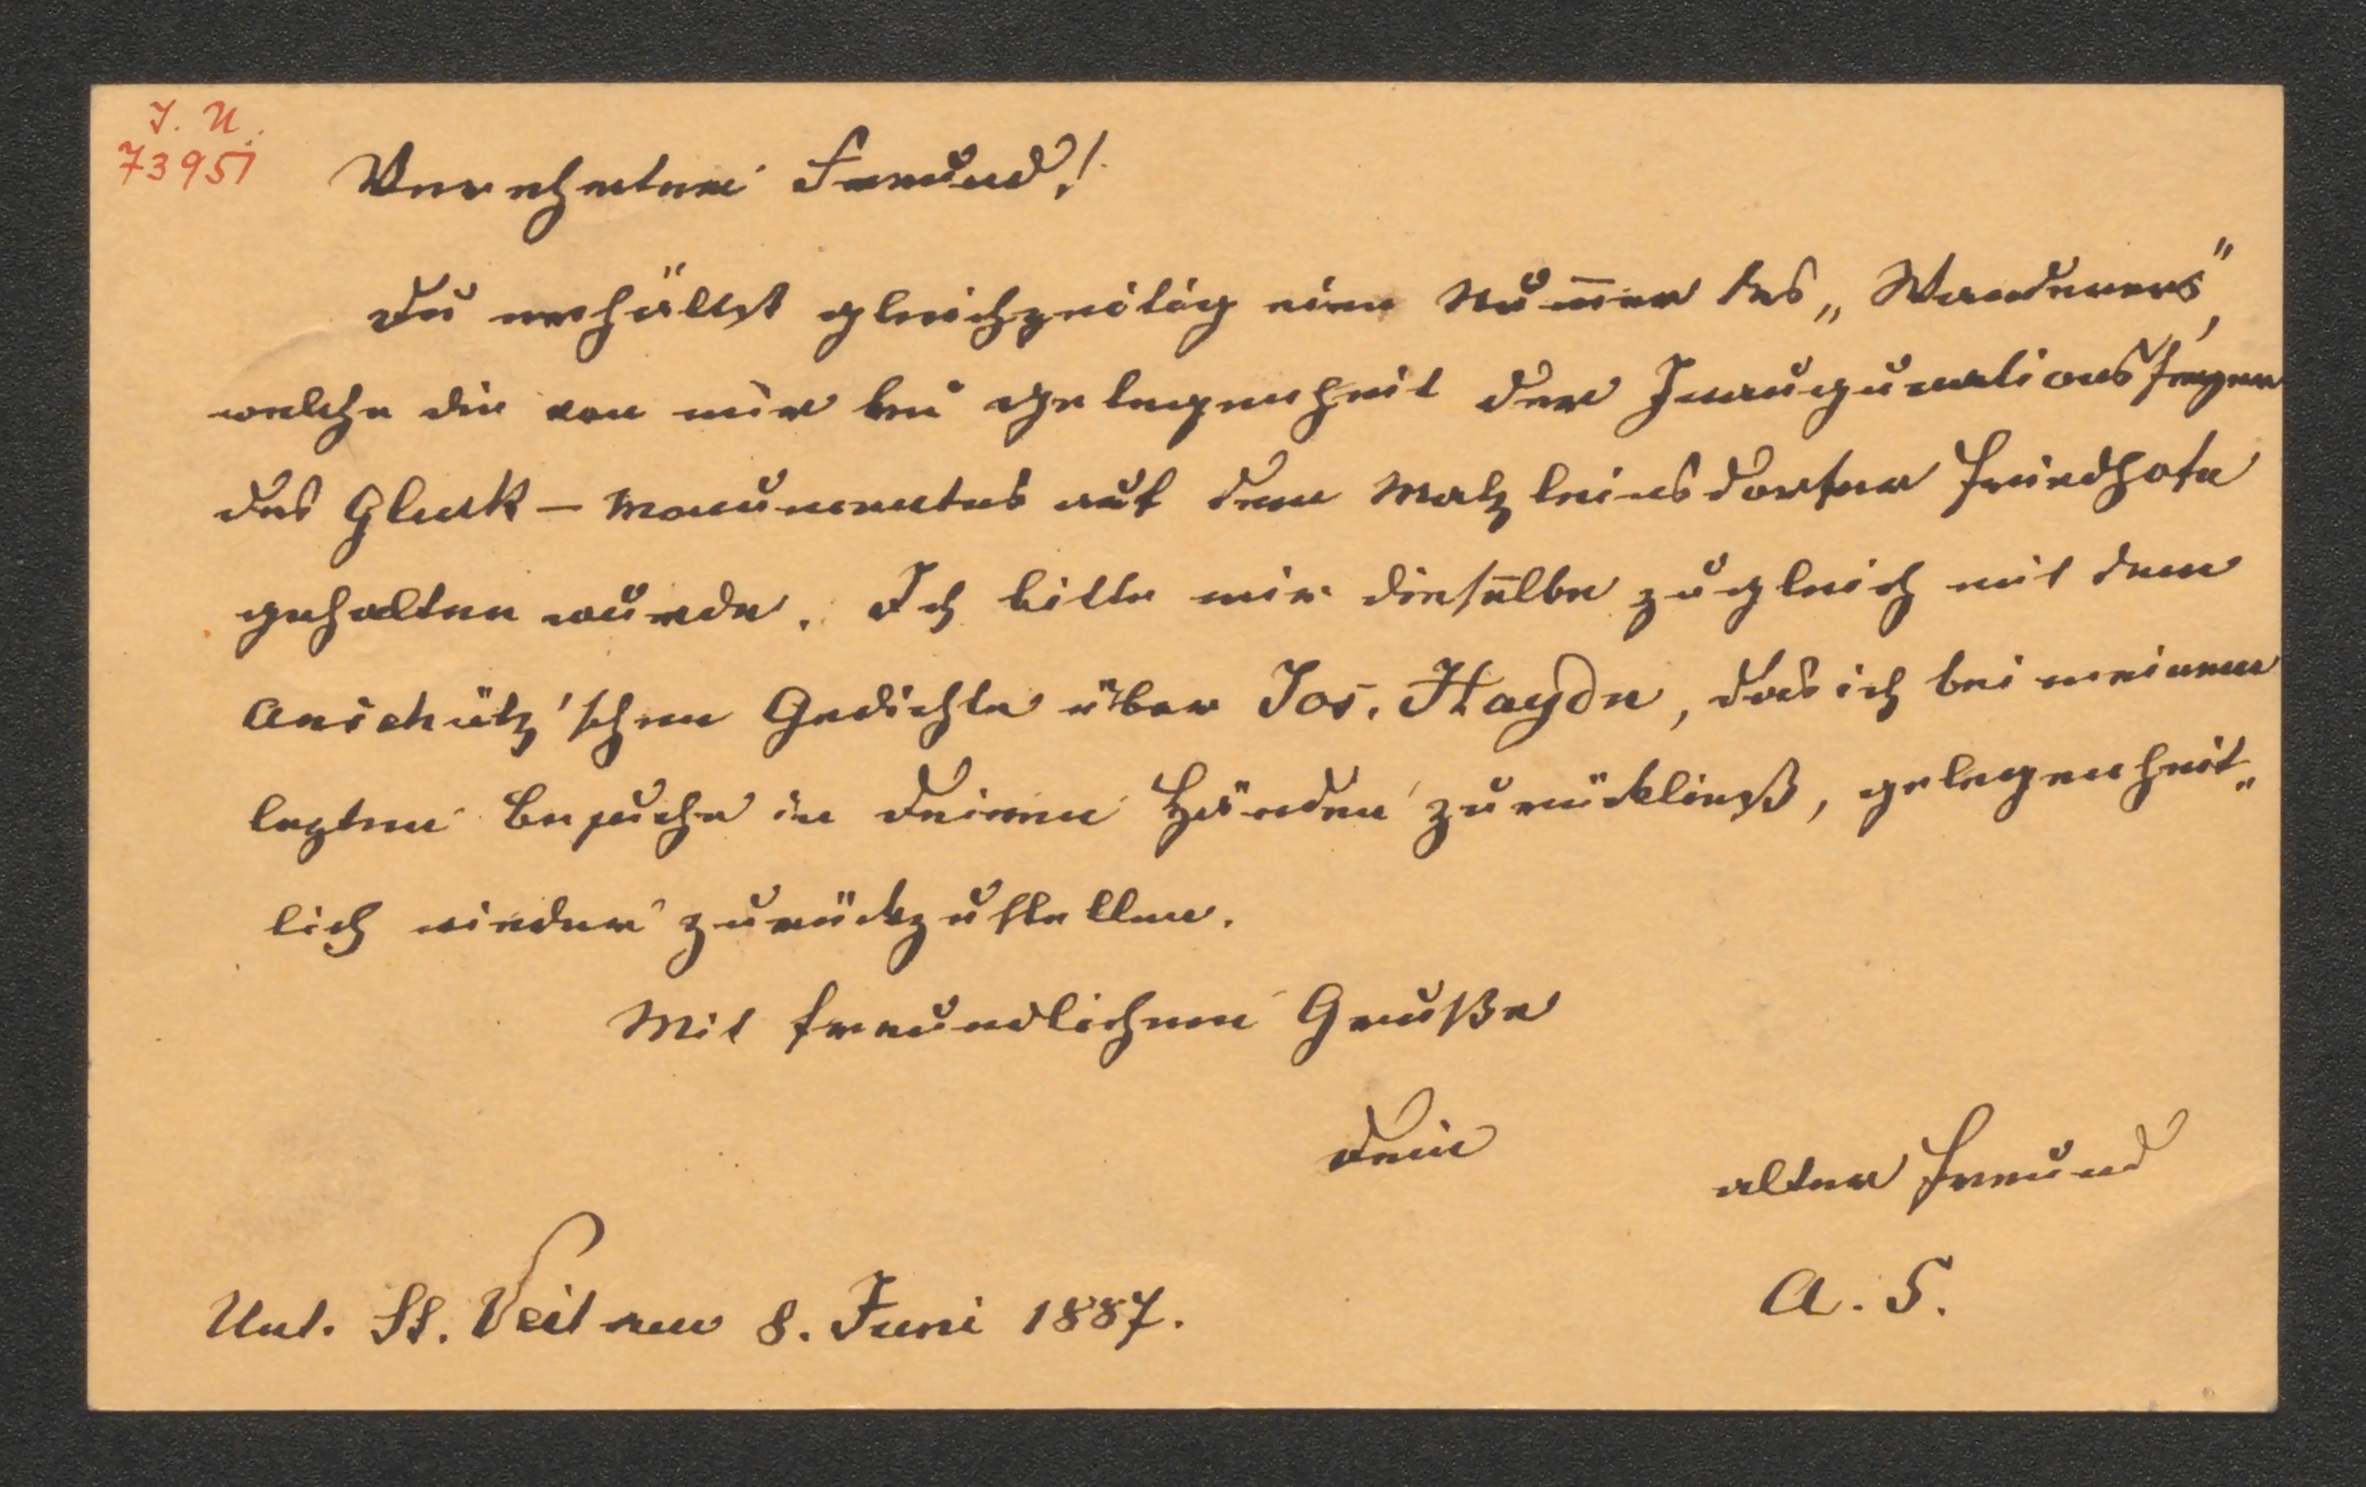 I. N.
73951
Verehrter Freund!
Du erhältst gleichzeitig eine Num̅er des „Wanderers“,
welche die von mir bei Gelegenheit der Inaugurations
des Gluck-Monumentes auf dem Matzleinsdorfer Friedhofe
gehalten wurde. Ich bitte mir dieselbe zugleich mit dem
Anschütz'schen Gedichte über Jos. Haydn, das ich bei meinem
lezten Besuche in Deinen Händen zurückließ, gelegenheit„
lich wieder zurückzustellen.
Mit freundlichem Gruße
Dein
alter Freund
A. S.
Unt. St. Veit am 8. Juni 1887.